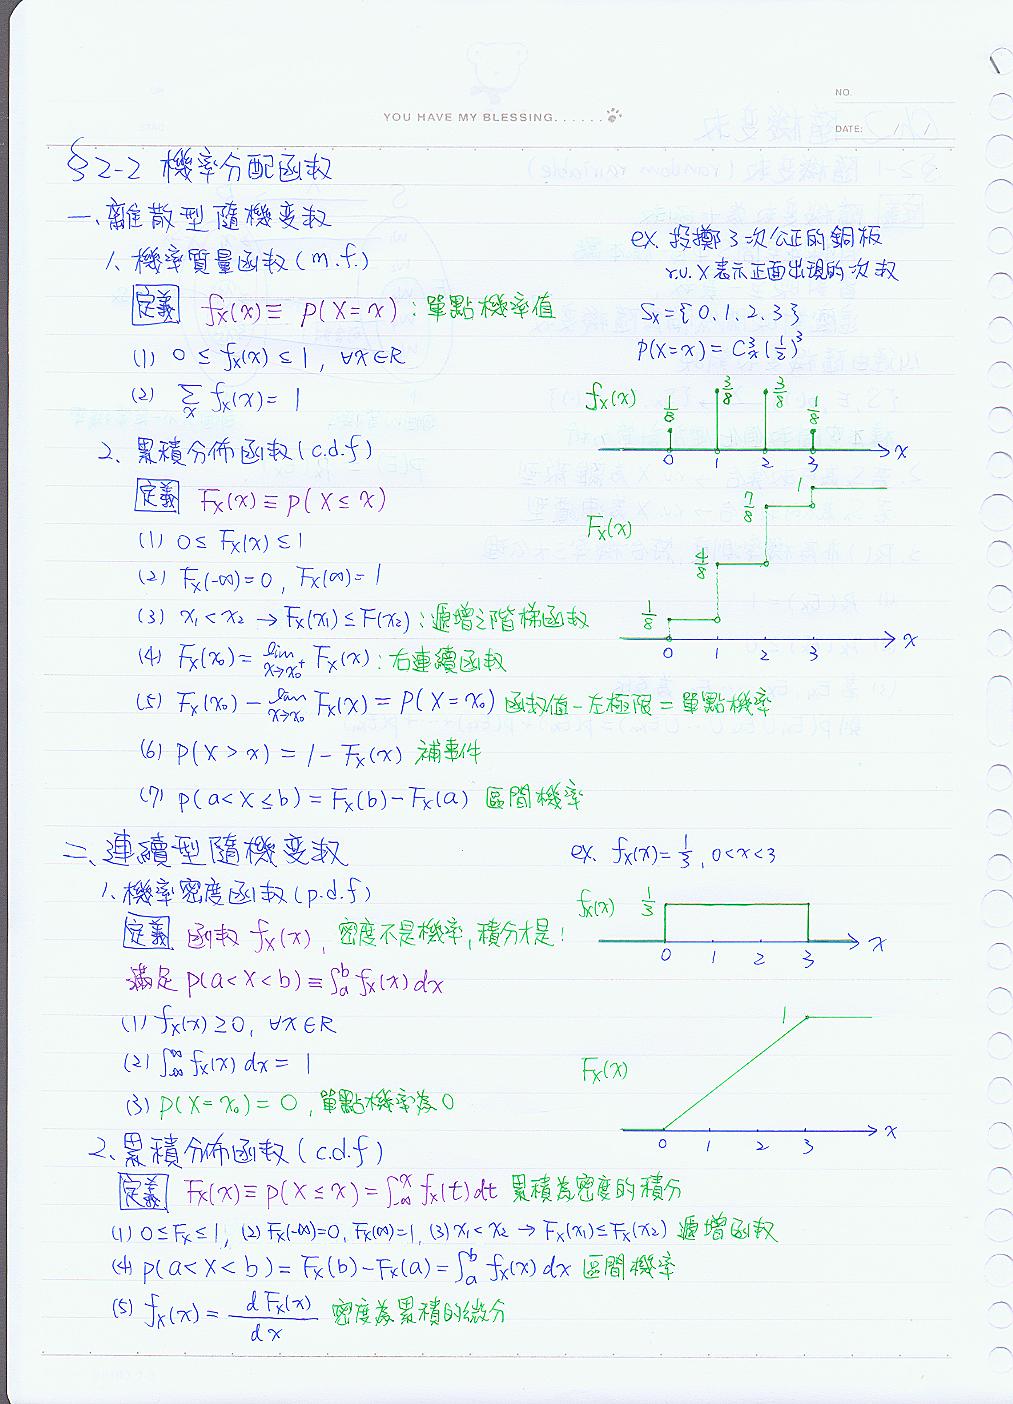 NO.
YOU HAVE MY BLESSING......
DATE: / /
§2-2 機率分配函数
一、離散型隨機变数
1、機率質量函数(m.f.)
定義 fx(x)≡ P(X=x):單點機率值
(1) 0 ≤ fx(x) ≤ 1, ∀x∈R
(2) Σx fx(x)= 1
ex. 投擲3次公正的銅板
r.v. X表示正面出現的次数
Sx={0.1.2.3}
P(X=x)= C³x(½)³
fx(x) 1/8 3/8 3/8 1/8
0 1 2 3 x
2、累積分佈函数(c.d.f)
定義 Fx(x)≡P(X≤x)
(1) 0≤Fx(x)≤1
(2) Fx(-∞)=0, Fx(∞)=1
(3) x₁<x₂ → Fx(x₁)≤F(x₂):遞增之階梯函数
(4) Fx(x₀)= lim x→x₀⁺ Fx(x):右連續函数
(5) Fx(x₀)- lim x→x₀⁻ Fx(x)=P(X=x₀) 函数值-左極限=單點機率
(6) P(X>x)=1-Fx(x) 補事件
(7) P(a<X≤b)=Fx(b)-Fx(a) 區間機率
Fx(x) 1/8 4/8 7/8 1
0 1 2 3 x
二、連續型隨機变数
1、機率密度函数(p.d.f)
定義 函数 fx(x), 密度不是機率,積分才是!
滿足 P(a<X<b)≡∫ₐᵇ fx(x)dx
(1) fx(x)≥0, ∀x∈R
(2) ∫₋∞^∞ fx(x)dx=1
(3) P(X=x₀)=0,單點機率為0
ex. fx(x)=1/3, 0<x<3
fx(x) 1/3
0 1 2 3 x
Fx(x) 1
0 1 2 3 x
2、累積分佈函数(c.d.f)
定義 Fx(x)≡P(X≤x)=∫₋∞^x fx(t)dt 累積為密度的積分
(1) 0≤Fx≤1, (2) Fx(-∞)=0, Fx(∞)=1, (3) x₁<x₂ → Fx(x₁)≤Fx(x₂) 遞增函数
(4) P(a<X<b)=Fx(b)-Fx(a)=∫ₐᵇ fx(x)dx 區間機率
(5) fx(x)= dFx(x)/dx 密度為累積的微分